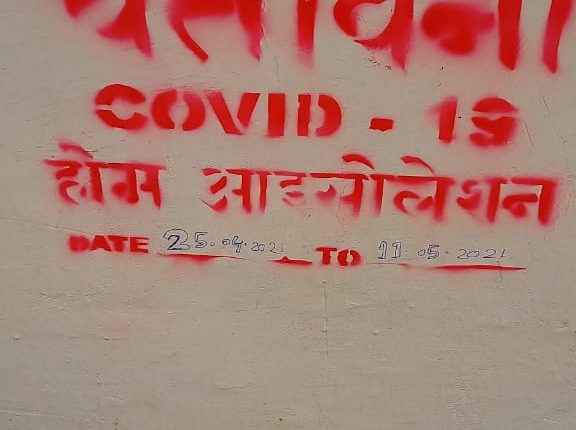 चेतावनी
COVID - 19
होम आइसोलेशन
DATE 25.04.2021 TO 11.05.2021